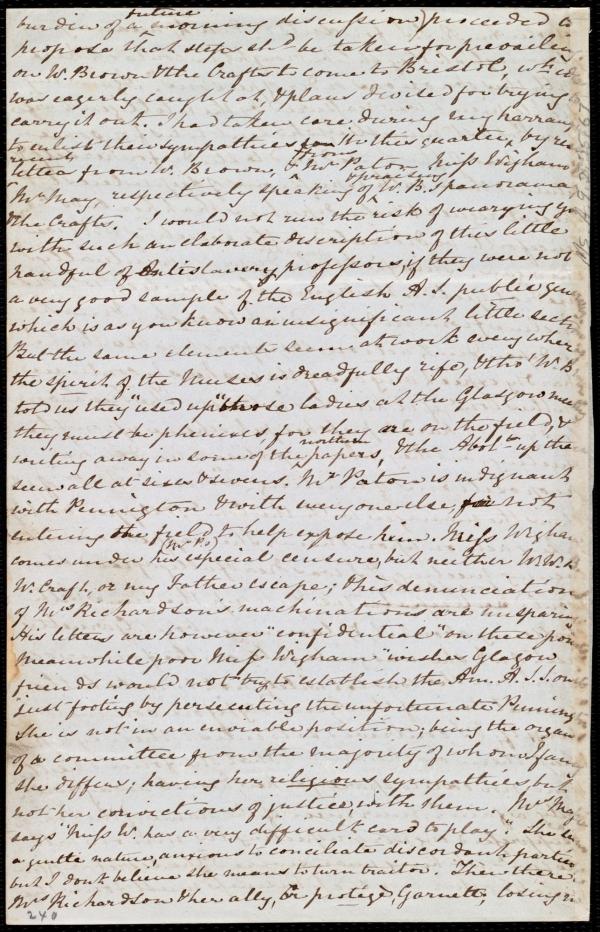 burden of a future morning discussion) proceeded to
propose that steps shd be taken for prevailing
on W. Brown & the Crafts to come to Bristol, wh. idea
was eagerly caught at, & plans devised for trying
carry it out. I had taken care during my harrang
to enlist their sympathies in this quarter, by
recent letters from W. Brown, & from Mr Paton, Miss Wigham
& Mr May, respectively speaking of & praising W. B's panorama
& the Crafts. I would not run the risk of wearying you
with such an elaborate description of this little
handful of Antislavery professors, if they were not
a very good sample of the English A.S. public
which is as you know an insignificant little sect.
But the same elements seem at work every where
the spirit of the Muses is dreadfully rife, & tho' W. B
told us they "used up" those ladies at the Glasgow
they must be phenixes, for they are on the field, &
writing away in some of the northern papers, & the Abolts up there
seem all at sixes & sevens. Mr Paton is indignant
with Pennington & with every one else, for not
entering the field to help expose him. Miss Wigham
comes under Mr P's especial censure, but neither W. W. B
W. Craft, or my Father escape; & his denunciations
of Mrs Richardson's machinations are unsparing
His letters are however "confidential" on these points
Meanwhile poor Miss Wigham "wishes Glasgow
friends would not try to establish the Am. A. S. S. on its
just footing by persecuting the unfortunate Pennington
She is not in an enviable position; being the organ
of a committee from the majority of whom I fancy
she differs; having her religious sympathies but
not her convictions of justice with them. Mr May
says "Miss W. has a very difficult card to play". She has
a gentle nature, anxious to conciliate discordant parties
but I don't believe she means to turn traitor. Then there
Mrs Richardson & her ally, & protégé, Garnett, losing no
240